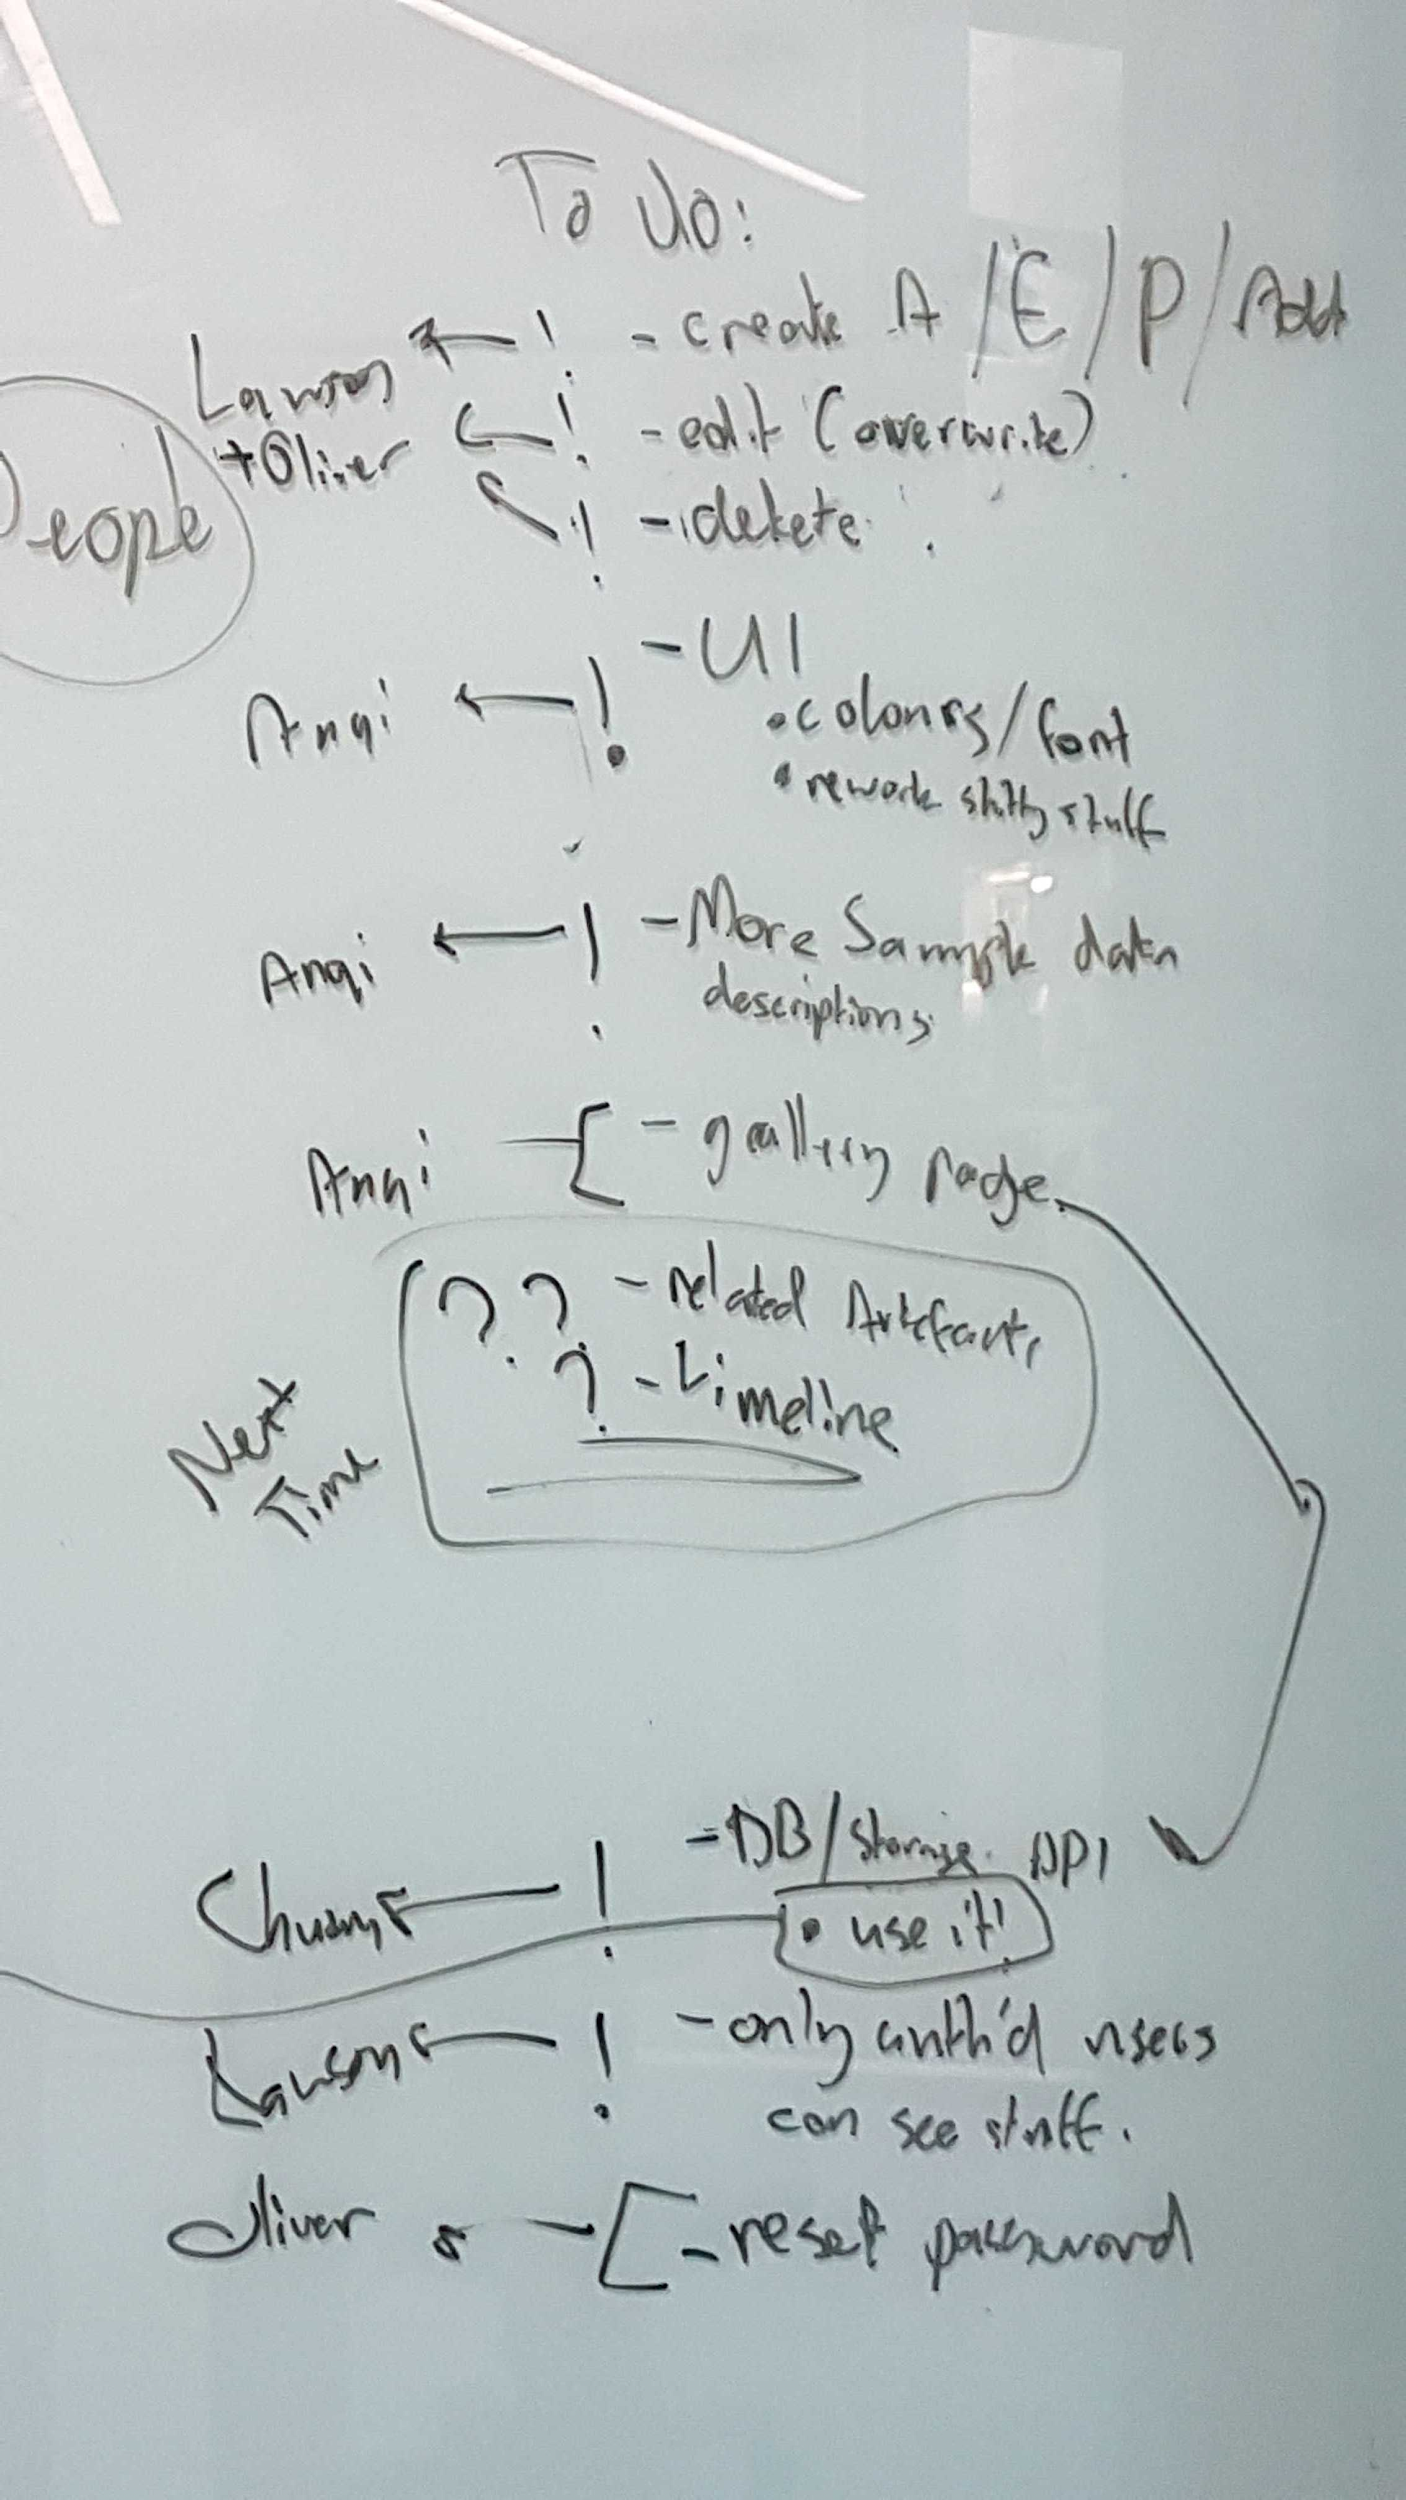 To do:
Lawson ← ! - create A / E / P / Add
+ Oliver ← ! - edit (overwrite)
← ! - delete
People
- UI
Anqi ← ! • colours/font
• rework shitty stuff
Anqi ← ! - More Sample data
descriptions
Anqi - gallery page
?? - related Artefacts
? - timeline
Next
Time
- DB/storage API
Chuang ← !
• use it!
Lawson ← ! - only auth'd users
can see stuff.
Oliver ← - reset password